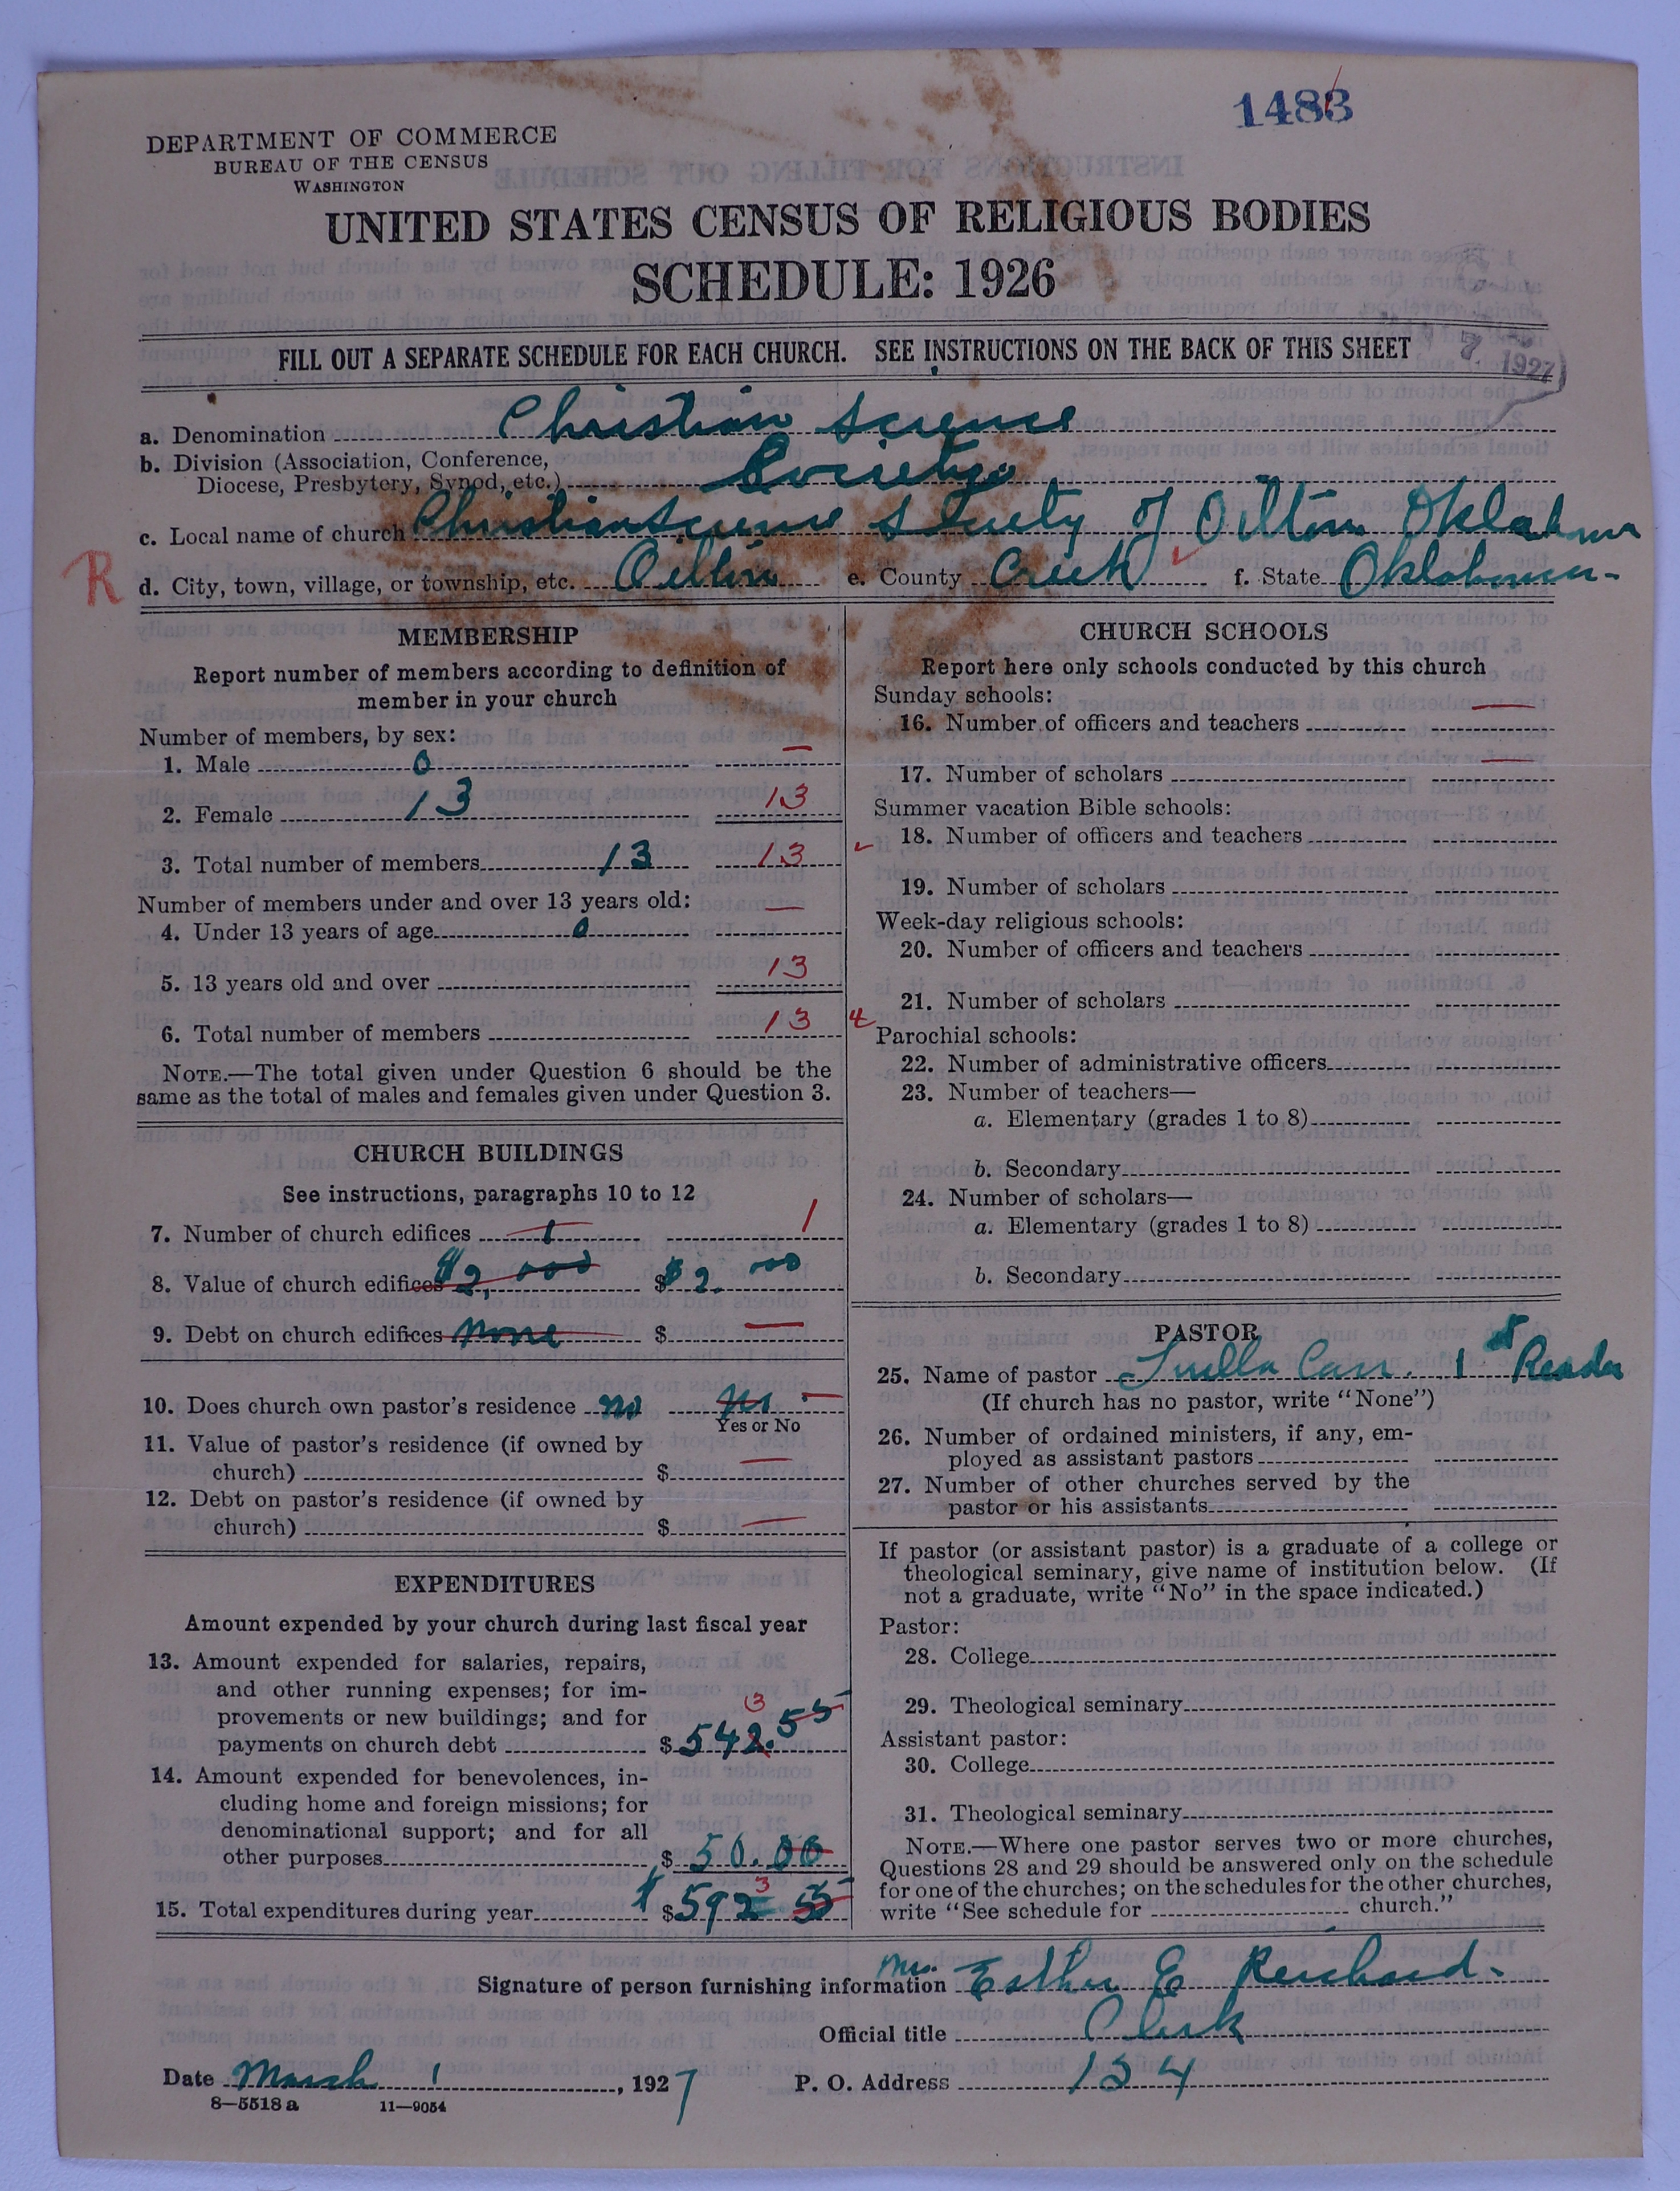 1483
DEPARTMENT OF COMMERCE
BUREAU OF THE CENSUS
WASHINGTON
UNITED STATES CENSUS OF RELIGIOUS BODIES
SCHEDULE: 1926
FILL OUT A SEPARATE SCHEDULE FOR EACH CHURCH. SEE INSTRUCTIONS ON THE BACK OF THIS SHEET
7 1927
a. Denomination Christian Science
b. Division (Association, Conference,
Diocese, Presbytery, Synod, etc.) Society
c. Local name of church Christian Science Society of Oilton Oklahoma
R
d. City, town, village, or township, etc. Oilton e. County Creek f. State Oklahoma-
MEMBERSHIP
Report number of members according to definition of
member in your church
Number of members, by sex:
1. Male 0 —
2. Female 13 13
3. Total number of members 13 13
Number of members under and over 13 years old:
4. Under 13 years of age 0 —
5. 13 years old and over 13
6. Total number of members 13
NOTE.—The total given under Question 6 should be the
same as the total of males and females given under Question 3.
CHURCH BUILDINGS
See instructions, paragraphs 10 to 12
7. Number of church edifices 1 1
8. Value of church edifices $2,000 $ $2.000
9. Debt on church edifices None $ —
10. Does church own pastor's residence no no —
Yes or No
11. Value of pastor's residence (if owned by
church) $ —
12. Debt on pastor's residence (if owned by
church) $ —
EXPENDITURES
Amount expended by your church during last fiscal year
13. Amount expended for salaries, repairs,
and other running expenses; for im-
provements or new buildings; and for
3
payments on church debt $ 542.55
14. Amount expended for benevolences, in-
cluding home and foreign missions; for
denominational support; and for all
other purposes $ 50.00
3
15. Total expenditures during year $ $592 55
CHURCH SCHOOLS
Report here only schools conducted by this church
Sunday schools:
16. Number of officers and teachers —
17. Number of scholars —
Summer vacation Bible schools:
18. Number of officers and teachers
19. Number of scholars
Week-day religious schools:
20. Number of officers and teachers
21. Number of scholars
Parochial schools:
22. Number of administrative officers
23. Number of teachers—
a. Elementary (grades 1 to 8)
b. Secondary
24. Number of scholars—
a. Elementary (grades 1 to 8)
b. Secondary
PASTOR
25. Name of pastor Luella Carr. 1st Reader
(If church has no pastor, write "None")
26. Number of ordained ministers, if any, em-
ployed as assistant pastors
27. Number of other churches served by the
pastor or his assistants
If pastor (or assistant pastor) is a graduate of a college or
theological seminary, give name of institution below. (If
not a graduate, write "No" in the space indicated.)
Pastor:
28. College
29. Theological seminary
Assistant pastor:
30. College
31. Theological seminary
NOTE.—Where one pastor serves two or more churches,
Questions 28 and 29 should be answered only on the schedule
for one of the churches; on the schedules for the other churches,
write "See schedule for church."
Signature of person furnishing information Mrs. Esther E Reichard-
Official title Clerk
Date March 1, 1927 P. O. Address 154
8—5518 a 11—9054